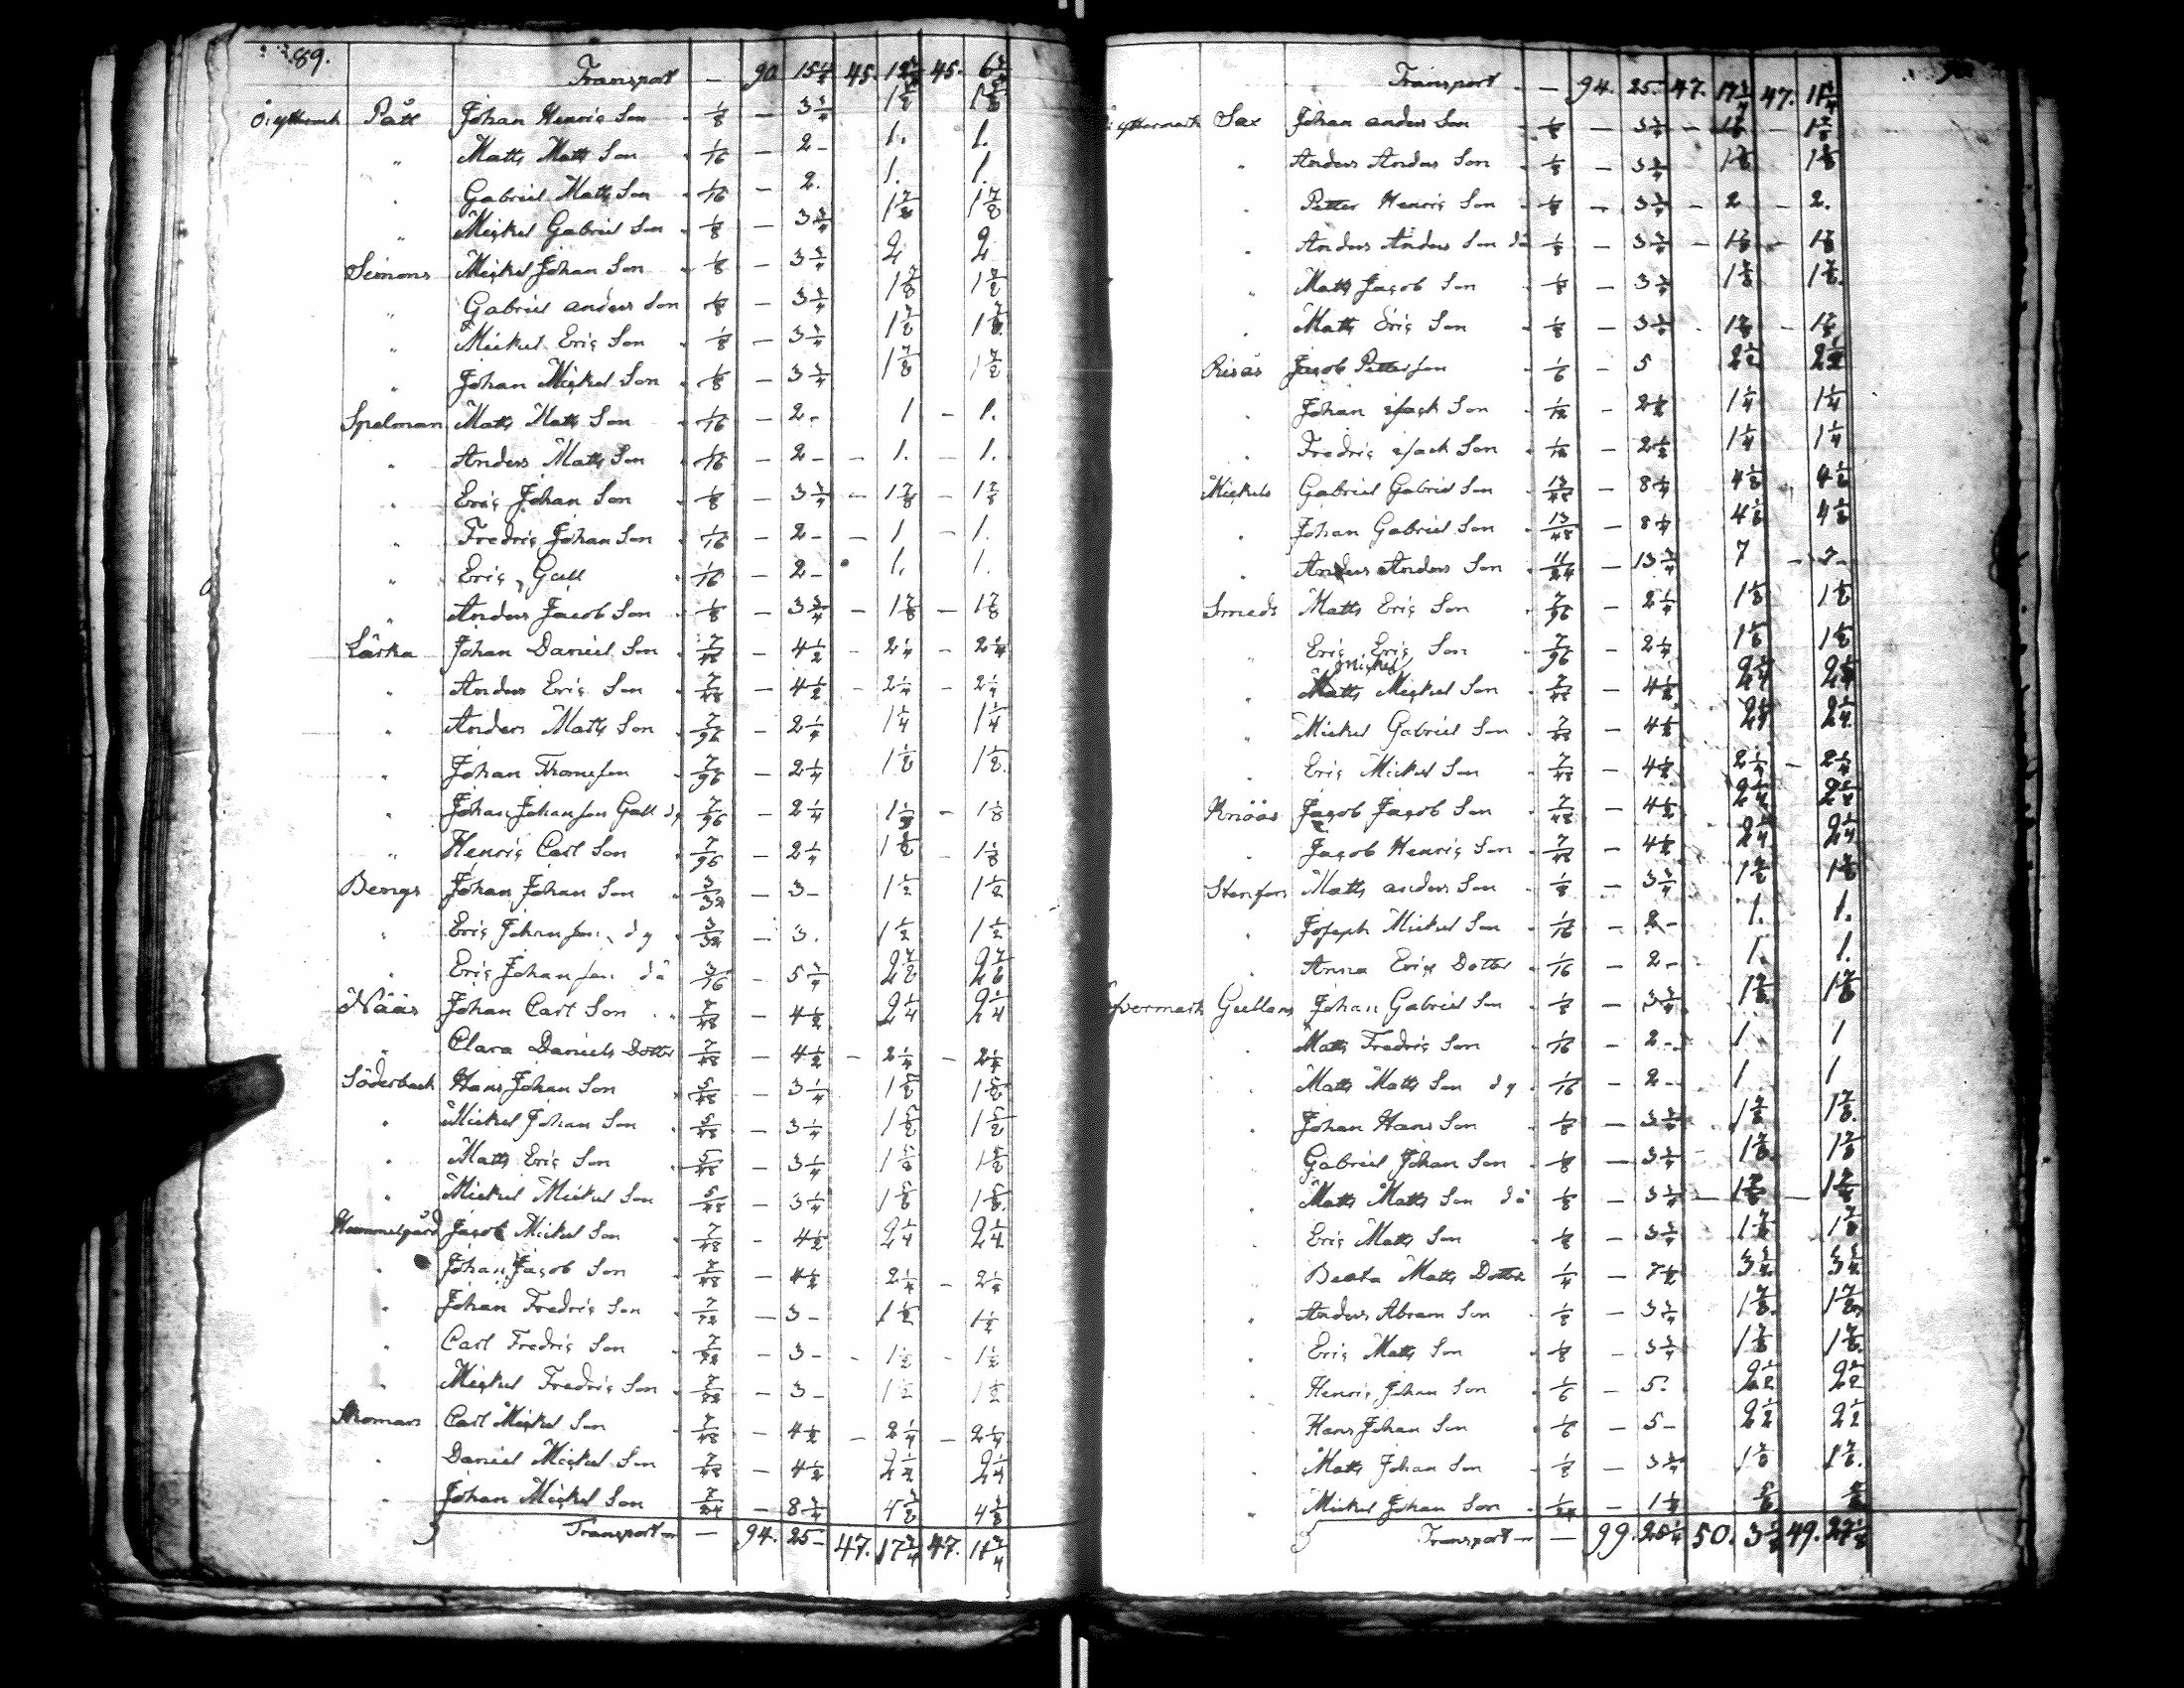 89.
Transport — 90 15¼ 45. 12⅞ 45. 6¾
Ö. yttermark Pått Johan Henrics Son 1/8 — 3¾ 1⅞ 1⅞
" Matts Matts Son 1/16 — 2 - 1. 1.
" Gabriel Matts Son 1/16 — 2. 1. 1.
" Mickel Gabriel Son 1/8 — 3¾ 1⅞ 1⅞
Simons Mickel Johan Son 1/8 — 3¾ 2 2
" Gabriel anders Son 1/8 — 3¾ 1⅞ 1⅞
" Mickel Eric Son 1/8 — 3¾ 1⅞ 1⅞
" Johan Mickel Son 1/8 — 3¾ 1⅞ 1⅞
Spelman Matts Matts Son 1/16 — 2 - 1 - 1.
" Anders Matts Son 1/16 — 2 - - 1. - 1.
" Eric Johan Son 1/8 — 3¾ - 1⅞ - 1⅞
" Fredric Johan Son 1/16 — 2 - - 1 - 1.
" Eric Gall 1/16 — 2 - 1. 1.
" Anders Jacob Son 1/8 — 3¾ - 1⅞ - 1⅞
Lärka Johan Daniel Son 7/48 — 4½ - 2¼ - 2¼
" Anders Eric Son 7/48 — 4½ - 2¼ - 2¼
" Anders Matts Son 7/96 — 2¼ 1¼ 1¼
" Johan Thomasson 7/96 — 2¼ 1⅛ 1⅛
" Johan Johansson Gall dy 7/96 — 2¼ 1⅛ - 1⅛
" Henric Carl Son 7/96 — 2¼ 1⅛ - 1⅛
Bengs Johan Johan Son 3/32 — 3 - 1½ 1½
" Eric Johansson dy 3/32 — 3. 1½ 1½
" Eric Johansson dä 3/16 — 5¾ 2⅞ 2⅞
Nääs Johan Carl Son 7/48 — 4½ 2¼ 2¼
" Clara Daniels Dotter 7/48 — 4½ - 2¼ - 2¼
Söderback Hans Johan Son 5/48 — 3¼ 1⅝ 1⅝
" Mickel Johan Son 5/48 — 3¼ 1⅝ 1⅝
" Matts Eric Son 5/48 — 3¼ 1⅝ 1⅝
" Mickel Mickel Son 5/48 — 3¼ 1⅝ 1⅝
Hammelgård Jacob Mickel Son 7/48 - 4½ 2¼ 2¼
" Johan Jacob Son 7/48 - 4½ 2¼ - 2¼
" Johan Fredric Son 7/72 — 3 - 1½ 1½
" Carl Fredric Son 7/72 — 3 - - 1½ - 1½
" Mickel Fredric Son 7/72 — 3 - 1½ 1½
Thomars Carl Mickel Son 7/48 — 4½ — 2¼ — 2¼
" Daniel Mickel Son 7/48 — 4½ 2¼ 2¼
" Johan Mickel Son 7/24 — 8¾ 4⅜ 4⅜
Transport — 94. 25 - 47. 17¾ 47. 11¾
Transport — 94. 25. 47. 17¾ 47. 11¾
yttermark Sax Johan anders Son 1/8 — 3¾ - 1⅞ - 1⅞
" Anders Anders Son 1/8 — 3¾ 1⅞ 1⅞
" Petter Henric Son 1/8 — 3¾ - 2 - 2.
" Anders Anders Son dä 1/8 — 3¾ - 1⅞ - 1⅞
" Matts Jacob Son 1/8 — 3¾ 1⅞ 1⅞
" Matts Eric Son 1/8 — 3¾ - 1⅞ - 1⅞
Risäs Jacob Pettersson 1/6 - 5 2½ 2½
" Johan isack Son 1/12 - 2½ 1¼ 1¼
" Fredric isack Son 1/12 - 2½ 1¼ 1¼
Mickels Gabriel Gabriel Son 13/48 - 8¼ 4⅛ 4⅛
" Johan Gabriel Son 13/48 - 8¼ 4⅛ 4⅛
" Anders Anders Son 11/24 — 13¾ 7 - 7 -
Smeds Matts Eric Son 7/96 - 2¼ 1⅛ 1⅛
" Eric Eric Son 7/96 - 2¼ 1⅛ 1⅛
Mickel
" Matts Mickel Son 7/48 - 4½ 2¼ 2¼
" Mickel Gabriel Son 7/48 - 4½ 2¼ 2¼
" Eric Mickel Son 7/48 — 4½ 2¼ - 2¼
Knöös Jacob Jacob Son 7/48 - 4½ 2¼ 2¼
" Jacob Henric Son 7/48 - 4½ 2¼ 2¼
Stenfors Matts anders Son 1/8 — 3¾ 1⅞ 1⅞
" Joseph Mickel Son 1/16 — 2 - 1. 1.
" Anna Erix Dotter 1/16 — 2 - 1. 1.
öfvermark Gullans Johan Gabriel Son 1/8 — 3¾ 1⅞ 1⅞
" Matts Fredric Son 1/16 — 2 - 1 1
" Matts Matts Son dy 1/16 - 2 - 1 1
" Johan Hans Son 1/8 — 3¾ 1⅞ 1⅞
Gabriel Johan Son 1/8 — 3¾ 1⅞ 1⅞
" Matts Matts Son dä 1/8 — 3¾ — 1⅞ — 1⅞
Eric Matts Son 1/8 — 3¾ 1⅞ 1⅞
Beata Matts Dotter 1/4 — 7½ 3¾ 3¾
" Anders Abram Son 1/8 — 3¾ 1⅞ 1⅞
" Eric Matts Son 1/8 — 3¾ 1⅞ 1⅞
" Henric Johan Son 1/6 — 5. 2½ 2½
" Hans Johan Son 1/6 — 5 - 2½ 2½
" Matts Johan Son 1/8 — 3¾ 1⅞ 1⅞
" Mickel Johan Son 1/24 — 1¼ ⅝ ⅝
Transport — 99. 25¼ 50. 3½ 49.